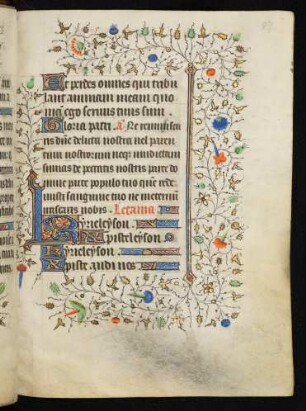 Et perdes omnes qui tribu
lant animam meam quo
niā ego servus tuus sum.
Gloria patri. Ā. Ne reminiscar
is dñe delicta nostra vel paren
tum nostrorum neqȝ vindictam
sumas de peccatis nostris parce do
mine parce populo tuo quē rede
misti sanguine tuo ne in eternū
irascaris nobis. Letania
Kyrieleyson
Xpisteleyson
Kyrieleyson
Xpiste audi nos